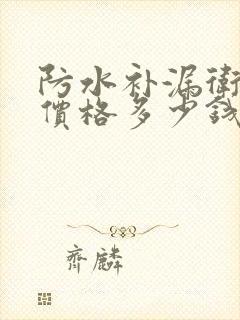 防水补漏衛
價格多少钱
齊麟